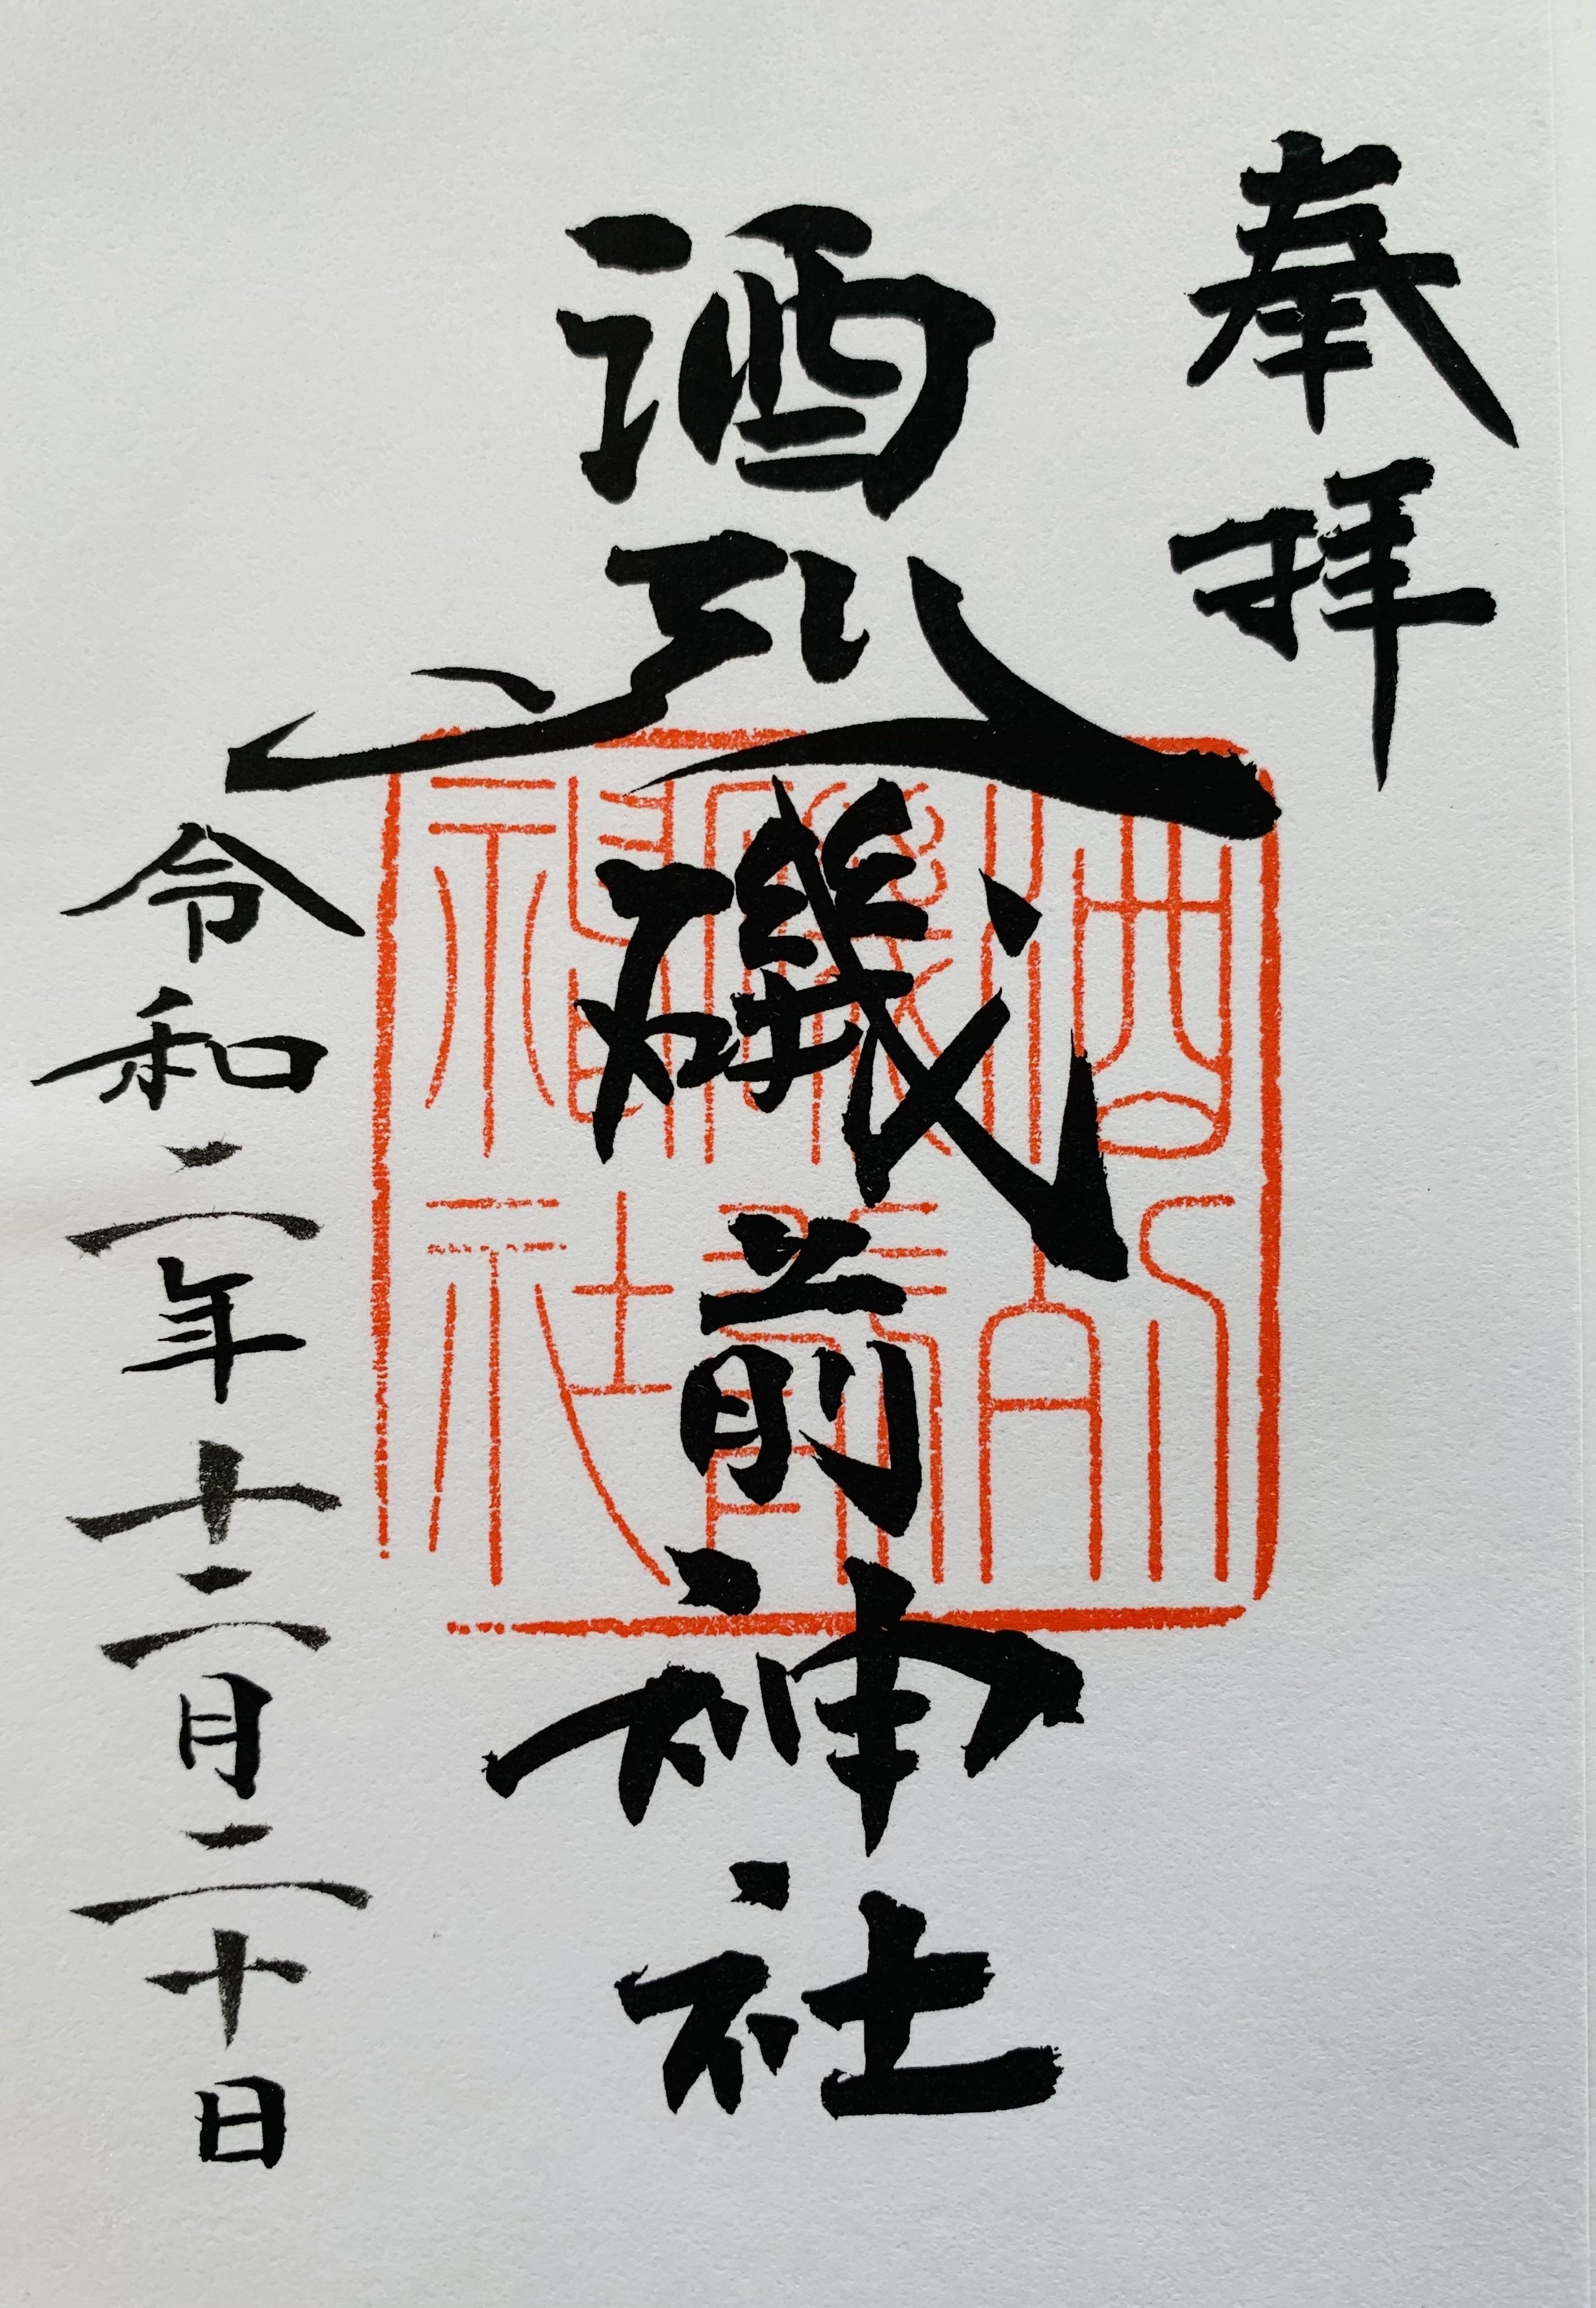 奉拝
酒列磯前神社
令和二年十二月二十日
酒列
磯前
神社